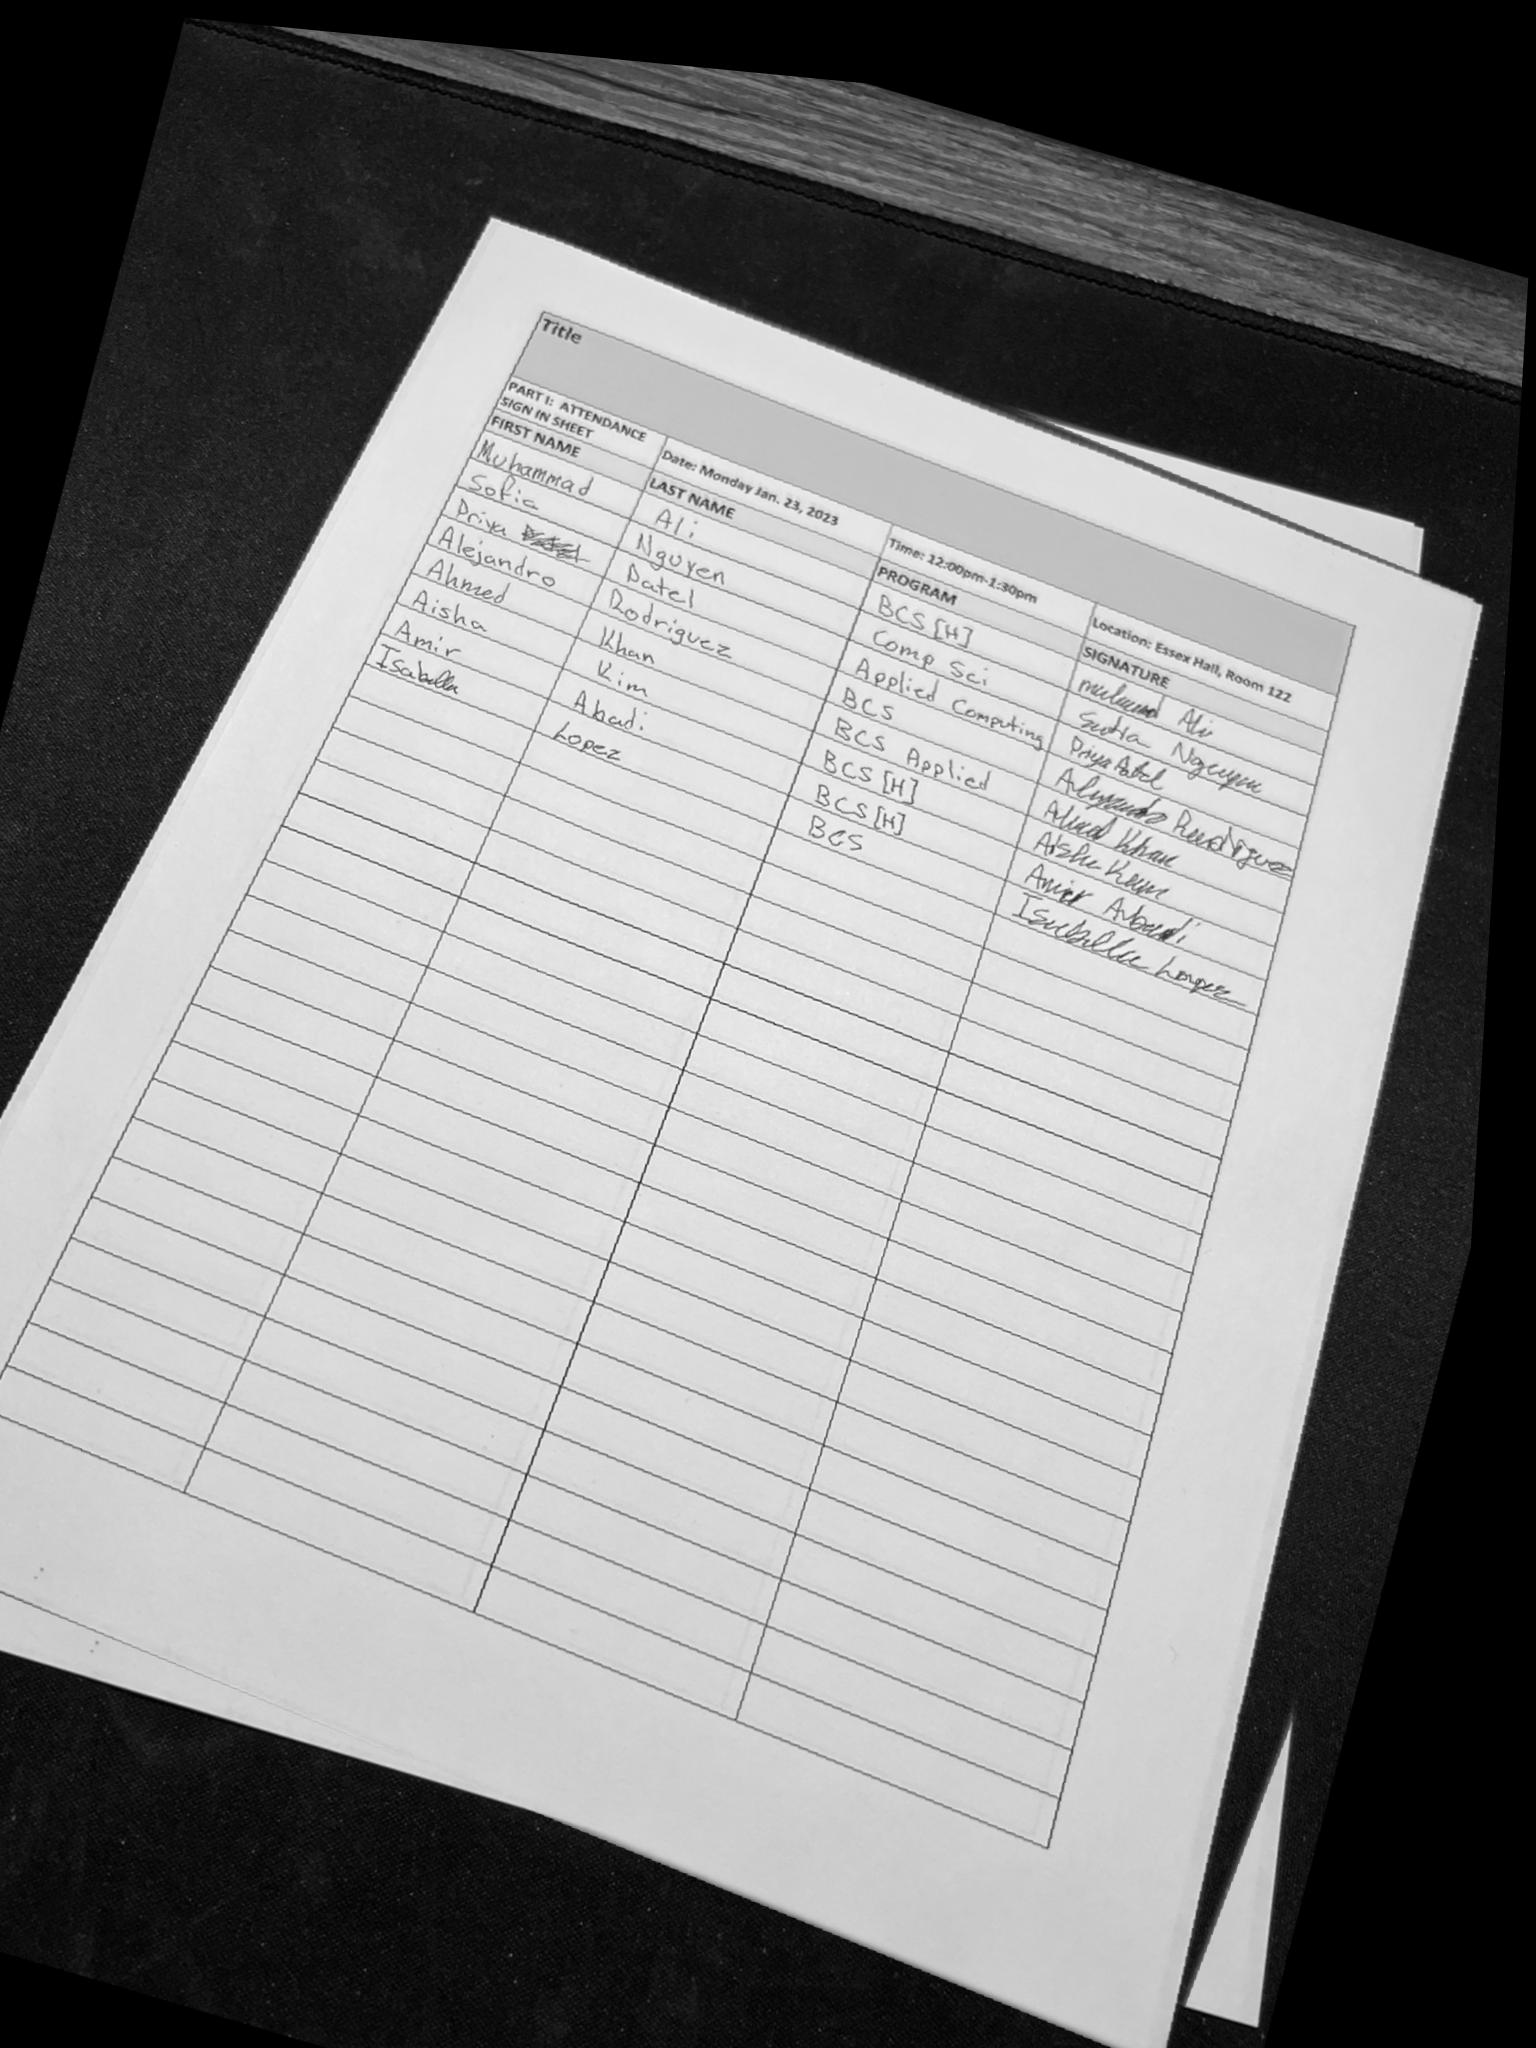 Title
PART I: ATTENDANCE
SIGN IN SHEET
Date: Monday Jan. 23, 2023
Time: 12:00pm-1:30pm
Location: Essex Hall, Room 122
FIRST NAME LAST NAME PROGRAM SIGNATURE
Muhammad Ali BCS [H] Ali
Sofia Nguyen Comp Sci Sofia Nguyen
Priya Patel Applied Computing Priya Patel
Alejandro Rodriguez BCS Alejandro Rodriguez
Ahmed Khan BCS Applied Ahmed Khan
Aisha Kim BCS [H] Aisha Kim
Amir Abadi BCS [H] Amir Abadi
Isabella Lopez BCS Isabella Lopez